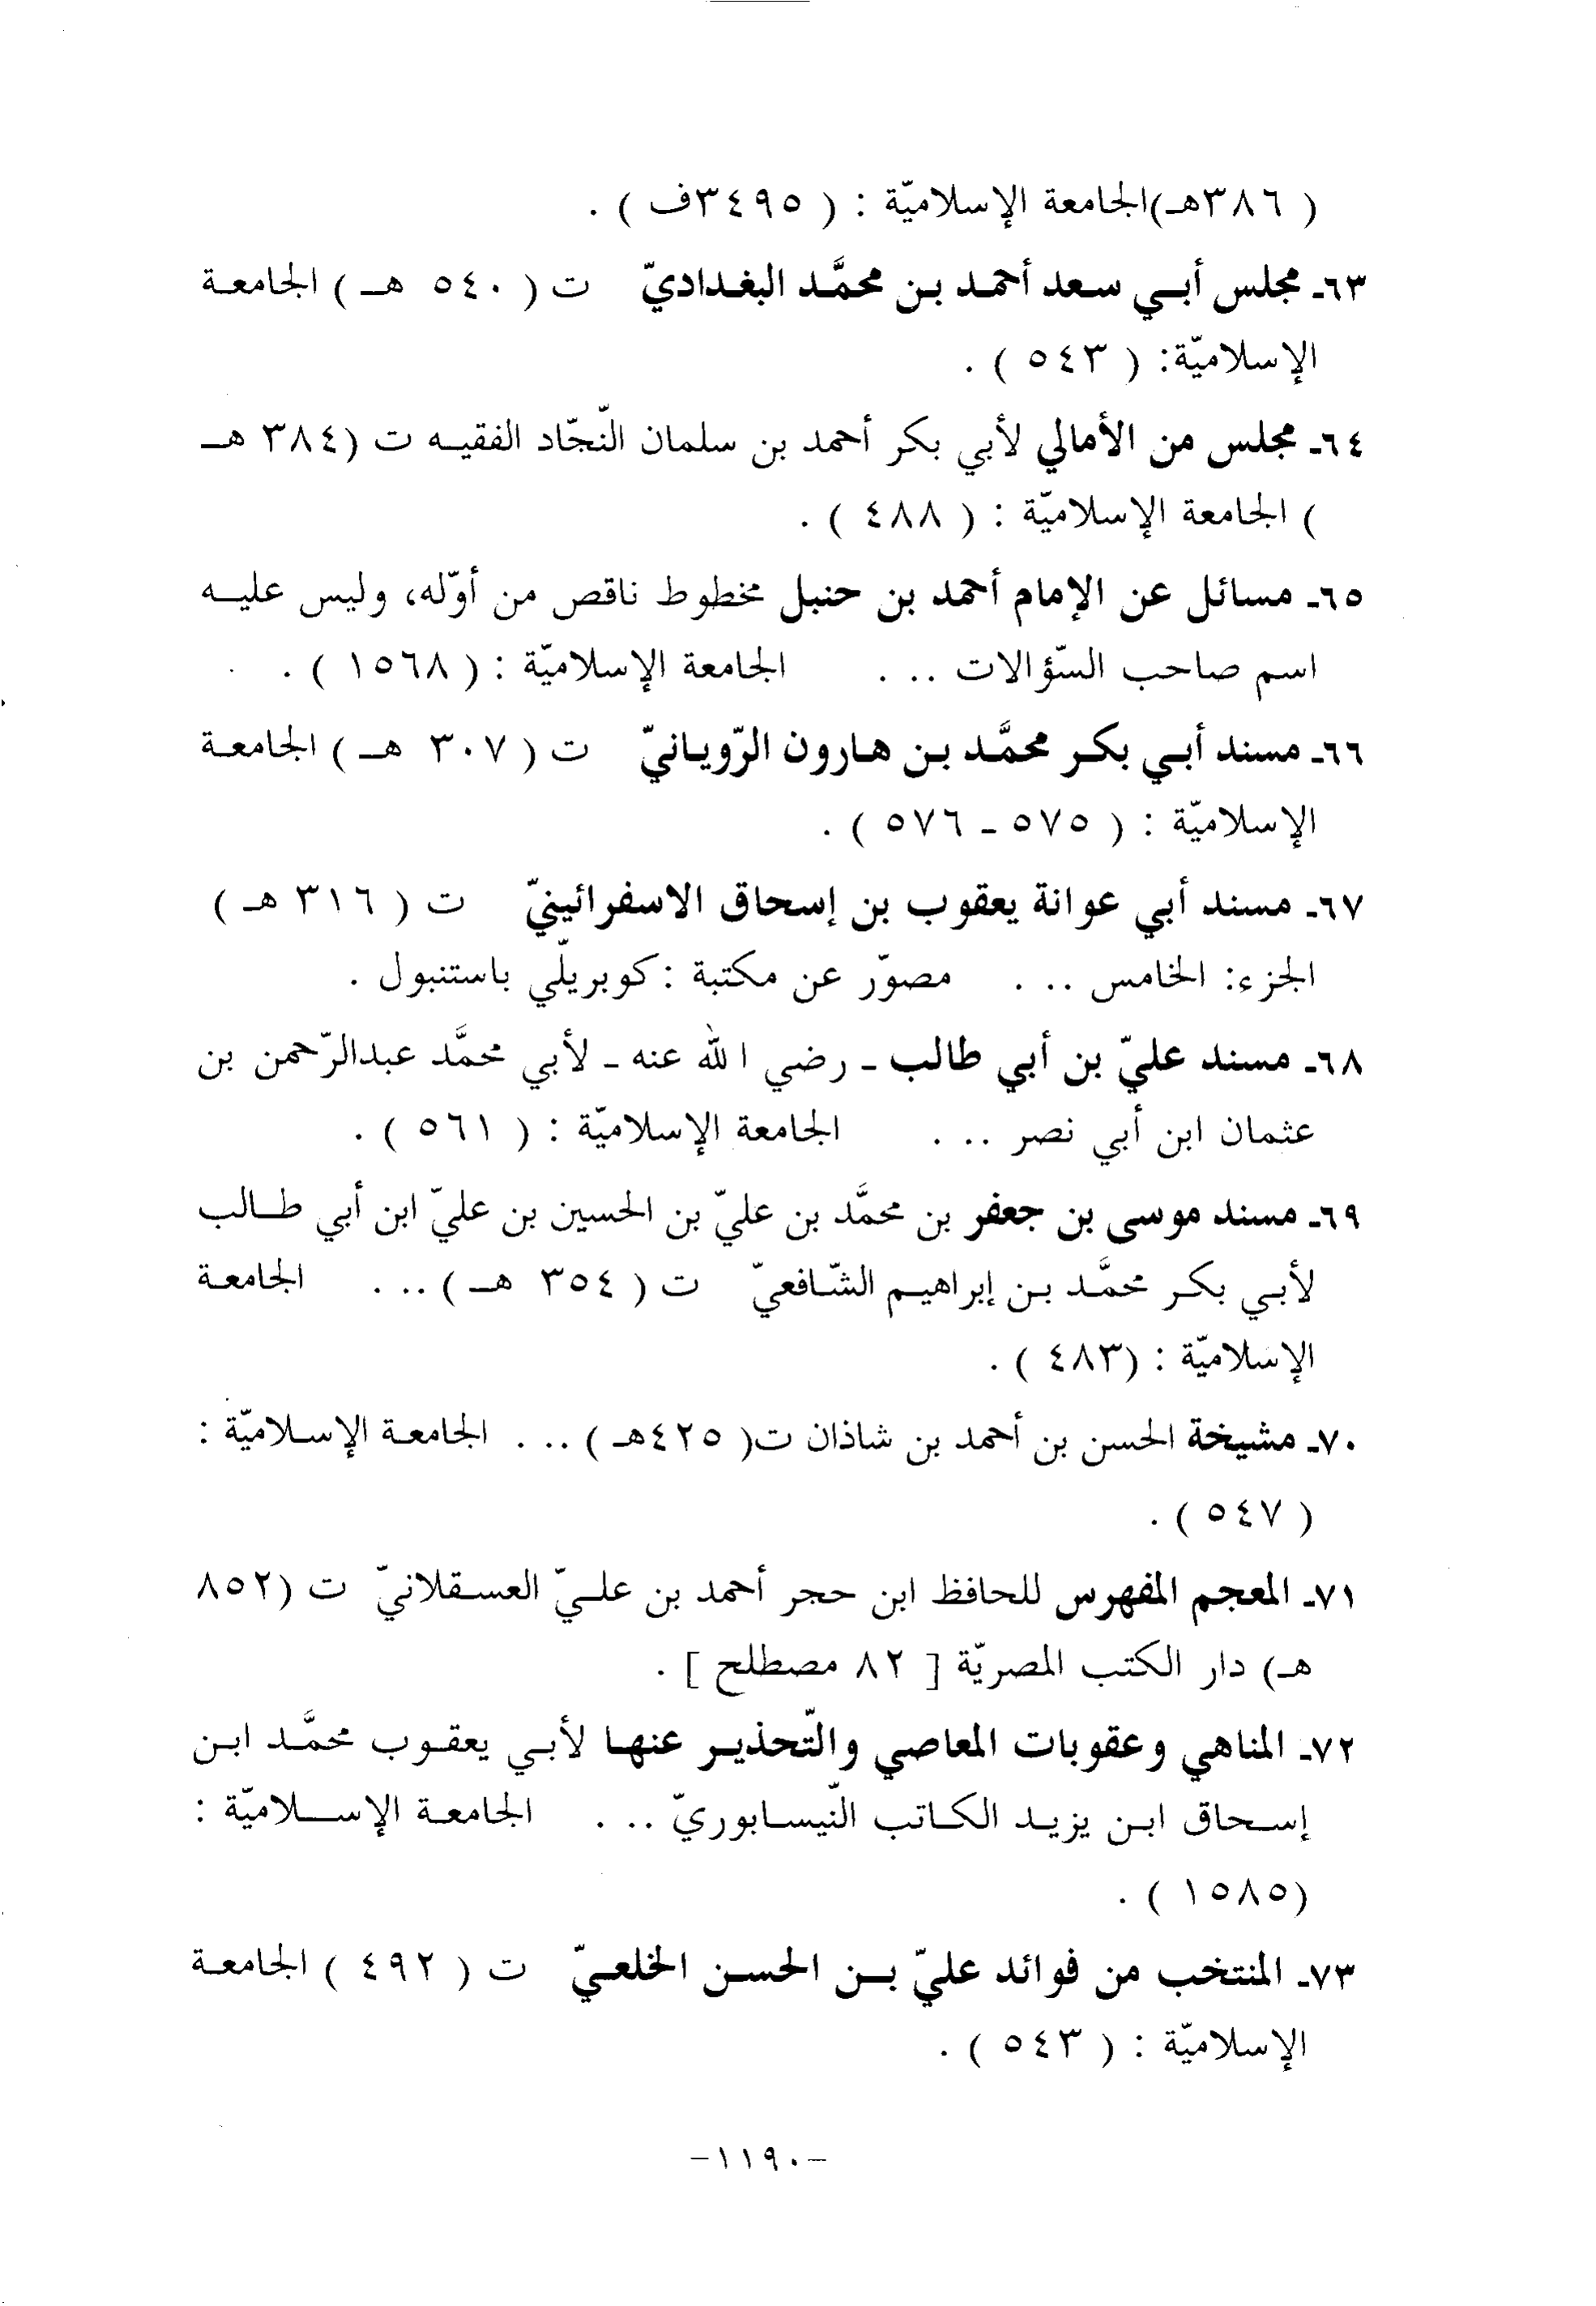 ( ٣٨٦هـ)الجامعة الإسلاميّة : ( ٣٤٩٥ف ) .
٦٣ـ مجلس أبـي سعد أحمد بـن محمَّـد البغـداديّ ت ( ٥٤٠ هـ ) الجامعـة
الإسلاميّة: ( ٥٤٣ ) .
٦٤ـ مجلس من الأمالي لأبي بكر أحمد بن سلمان النّجّاد الفقيـه ت (٣٨٤ هـ
) الجامعة الإسلاميّة : ( ٤٨٨ ) .
٦٥ـ مسائل عن الإمام أحمد بن حنبل مخطوط ناقص من أوّله، وليس عليـه
اسم صاحب السّؤالات ... الجامعة الإسلاميّة : ( ١٥٦٨ ) .
٦٦ـ مسند أبـي بكـر محمَّـد بـن هـارون الرّويـانيّ ت ( ٣٠٧ هـ ) الجامعـة
الإسلاميّة : ( ٥٧٥ ـ ٥٧٦ ) .
٦٧ـ مسند أبي عوانة يعقوب بن إسحاق الاسفرائينيّ ت ( ٣١٦ هـ )
الجزء: الخامس ... مصوّر عن مكتبة : كوبريلّي باستنبول .
٦٨ـ مسند عليّ بن أبي طالب ـ رضي الله عنه ـ لأبي محمَّد عبدالرّحمن بن
عثمان ابن أبي نصر ... الجامعة الإسلاميّة : ( ٥٦١ ) .
٦٩ـ مسند موسى بن جعفر بن محمَّد بن عليّ بن الحسين بن عليّ ابن أبي طـالب
لأبـي بكـر محمَّـد بـن إبراهيـم الشّـافعيّ ت ( ٣٥٤ هـ ) ... الجامعـة
الإسلاميّة : (٤٨٣ ) .
٧٠ـ مشيخة الحسن بن أحمد بن شاذان ت( ٤٢٥هـ ) ... الجامعـة الإسـلاميّة :
( ٥٤٧ ) .
٧١ـ المعجم المفهرس للحافظ ابن حجر أحمد بن علـيّ العسـقلانيّ ت (٨٥٢
هـ) دار الكتب المصريّة [ ٨٢ مصطلح ] .
٧٢ـ المناهي وعقوبات المعاصي والتّحذيـر عنهـا لأبـي يعقـوب محمَّـد ابـن
إسـحاق ابـن يزيـد الكـاتب النّيسـابوريّ ... الجامعـة الإسـلاميّة :
(١٥٨٥ ) .
٧٣ـ المنتخب من فوائد عليّ بـن الحسـن الخلعـيّ ت ( ٤٩٢ ) الجامعـة
الإسلاميّة : ( ٥٤٣ ) .
-١١٩٠-